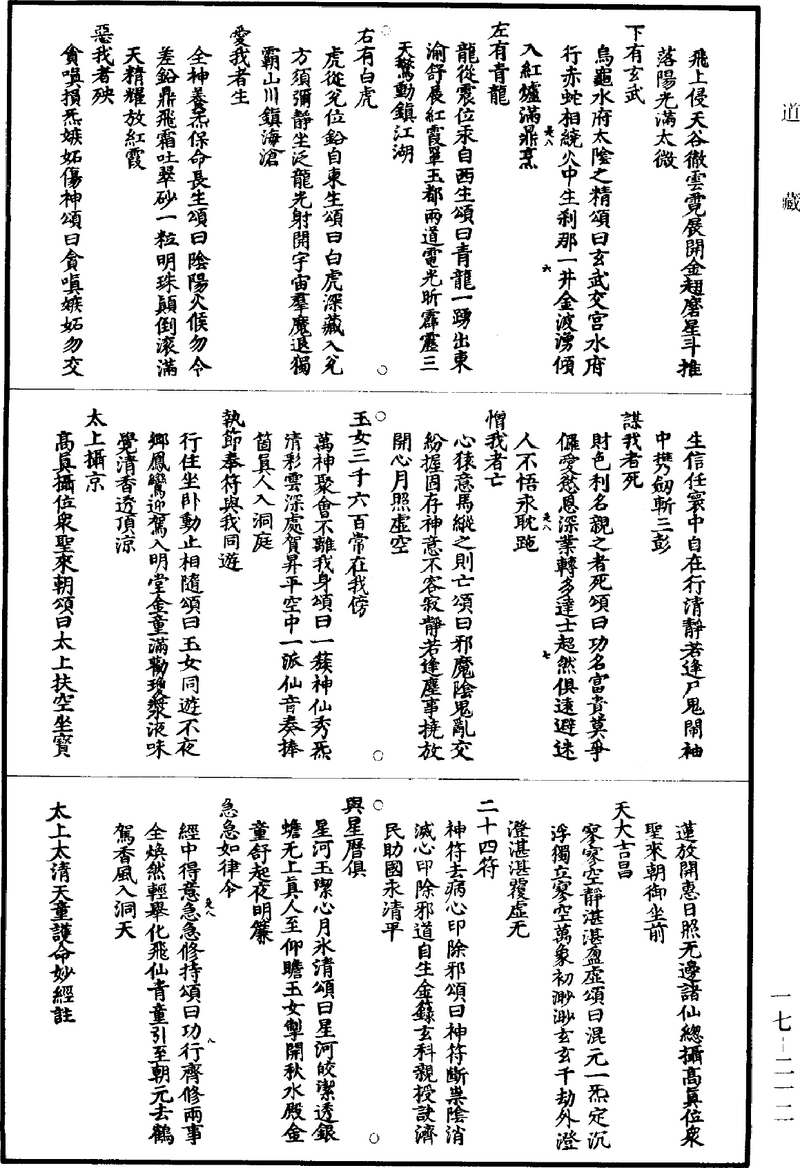 道藏
飛上侵天谷徹雲霓展開金翅磨星斗推
落陽光滿太微
下有玄武
烏龜水府太陰之精頌曰玄武交宮水府
行赤蛇相繞火中生刹那一井金波湧傾
入紅爐滿鼎烹
左有青龍
龍從震位汞自西生頌曰青龍一踴出東
渝舒展紅霞罩玉都兩道電光昕霹靂三
天驚動鎮江湖
右有白虎
虎從兊位鉛自東生頌曰白虎深藏入兊
方須彌靜坐泛龍光射開宇宙羣魔退獨
霸山川鎮海滄
愛我者生
全神養炁保命長生頌曰陰陽火候勿令
差鉛鼎飛霜吐翠砂一粒明珠顛倒滚滿
天精耀放紅霞
惡我者殃
貪嗔損炁嫉妬傷神頌曰貪嗔嫉妬勿交
生信任寰中自在行清靜若逢尸鬼鬧袖
中携劒斬三彭
謀我者死
財色利名親之者死頌曰功名富貴莫爭
儸愛慾恩深業轉多達士超然俱遠避迷
人不悟永耽跎
憎我者亡
心猿意馬縱之則亡頌曰邪魔陰鬼亂交
紛握固存神意不容寂靜若逢塵事撓放
開心月照虛空
玉女三千六百常在我傍
萬神聚會不離我身頌曰一簇神仙秀炁
清彩雲深處賀昇平空中一派仙音奏捧
箇真人入洞庭
執節奉符與我同遊
行住坐卧動止相隨頌曰玉女同遊不夜
鄉鳳鸞迎駕入明堂金童滿勸瓊漿液味
覺清香透頂涼
太上攝京
高真攝位衆聖來朝頌曰太上扶空坐寳
蓮放開惠日照无邊諸仙總攝高真位衆
聖來朝御坐前
天大吉昌
寥寥空靜湛湛盈虛頌曰混元一炁定沉
浮獨立寥空萬象初渺渺玄玄千劫外澄
澄湛湛覆虛无
二十四符
神符去病心印除邪頌曰神符斷祟陰消
滅心印除邪道自生金籙玄科親授訣濟
民助國永清平
與星曆俱
星河玉潔心月氷清頌曰星河皎潔透銀
蟾无上真人至仰瞻玉女掣開秋水殿金
童舒起夜明簾
急急如律令
經中得意急急修持頌曰功行齊修兩事
全煥然輕舉化飛仙青童引至朝元去鶴
駕香風入洞天
太上太清天童護命妙經註
一七-二一二